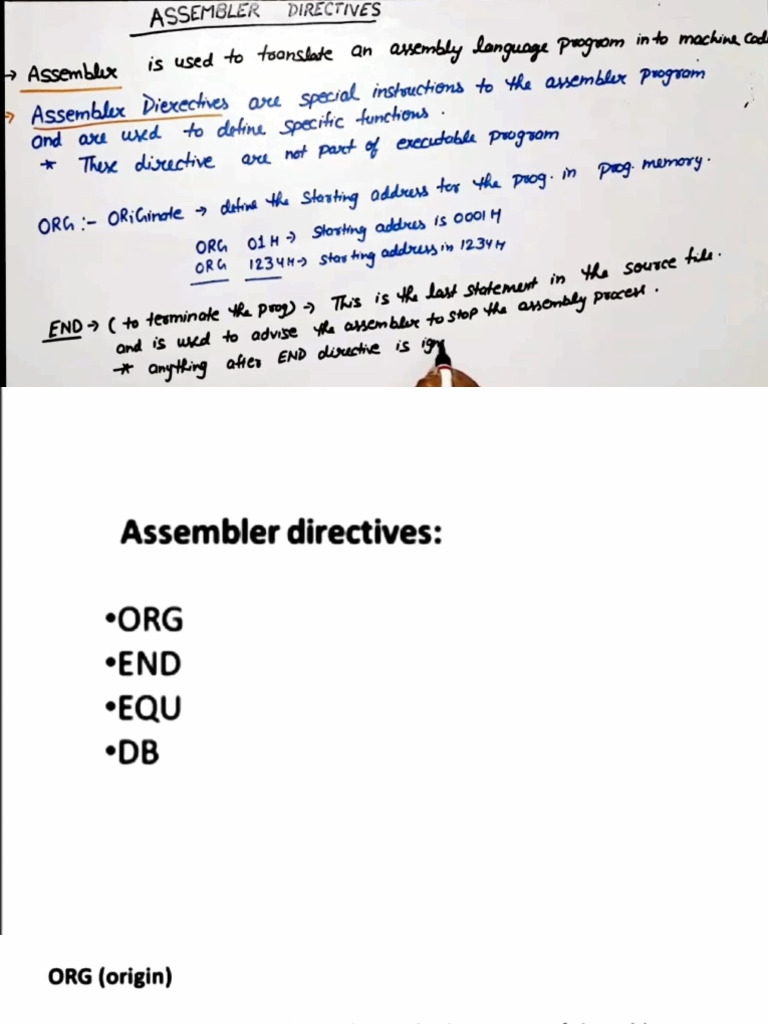 ASSEMBLER DIRECTIVES
→ Assembler is used to translate an assembly language program in to machine cod
→ Assembler Dierectives are special instructions to the assembler program
and are used to define specific functions.
* These directive are not part of executable program
ORG :- ORiGinate → define the Starting address for the prog. in prog. memory.
ORG 01H → Starting addres is 0001H
ORG 1234H → starting address in 1234H
END → (to terminate the prog) → This is the last statement in the source file.
and is used to advise the assembler to stop the assembly process.
* anything after END directive is ig
Assembler directives:
•ORG
•END
•EQU
•DB
ORG (origin)